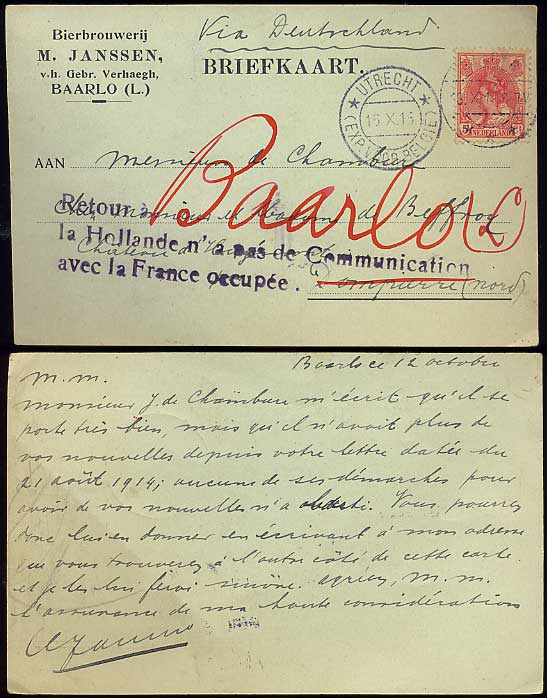 Bierbrouwerij
M. JANSSEN,
v.h. Gebr. Verhaegh,
BAARLO (L.)
Via Deutschland
BRIEFKAART.
UTRECHT
15.X.15
NEDERLAND
AAN Monsieur de Chambure
Baarlo (L)
chez Monsieur et Madame de Beffroy
Château de
Dompierre (nord)
Retour à
la Hollande n'a pas de Communication
avec la France occupée.
Baarlo ce 12 octobre
M. M.
Monsieur J. de Chambure m'écrit qu'il se
porte très bien, mais qu'il n'avait plus de
vos nouvelles depuis votre lettre datée du
21 août 1914; aucune de ses démarches pour
avoir de vos nouvelles n'a abouti. Vous pourrez
donc lui en donner en écrivant à mon adresse
que vous trouverez à l'autre côté de cette carte
et je les lui ferai suivre. Agréez, M. M.
l'assurance de ma haute considération